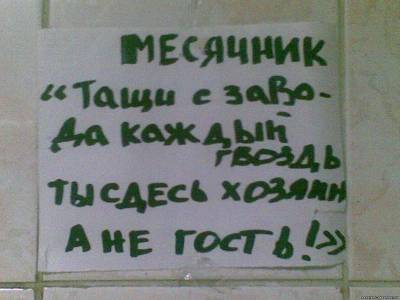 МЕСЯЧНИК
“Тащи с заво-
да каждый
гвоздь
ты сдесь хозяин
А не гость!”